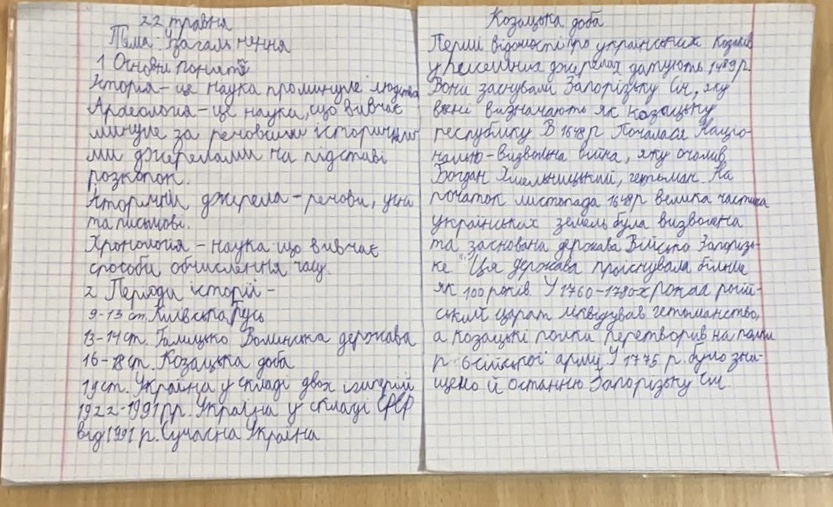 22 травня
Тема: Узагальнення
1. Основні поняття
Історія - це наука про минуле людства
Археологія - це наука, що вивчає
минуле за речовими історични
ми джерелами на підставі
розкопок.
Історичні джерела - речові, усні
та писемні.
Хронологія - наука що вивчає
способи обчислення часу.
2 Періоди історії -
9-13 ст. Київська Русь
13-14 ст. Галицько Волинська держава
16-18 ст. Козацька доба
19 ст. Україна у складі двох імперій
1922-1991 рр. Україна у складі СРСР
від 1991 р. Сучасна Україна
Козацька доба
Перші відомості про українських козаків
у писемних джерелах датують 1489 р.
Вони заснували Запорізьку Січ, яку
вчені визначають як козацьку
республіку. В 1648 р Почалася Націо-
нально-визвольна війна, яку очолив
Богдан Хмельницький, гетьман. На
початок листопада 1648 р велика частина
українських земель була визволена
та заснована держава Військо Запорізь-
ке. Ця держава проіснувала більше
як 100 років. У 1760-1780х роках росій-
ський царат ліквідував гетьманство,
а козацькі полки перетворив на полки
російської армії. У 1775 р. було зни-
щено й останню Запорізьку Січ.